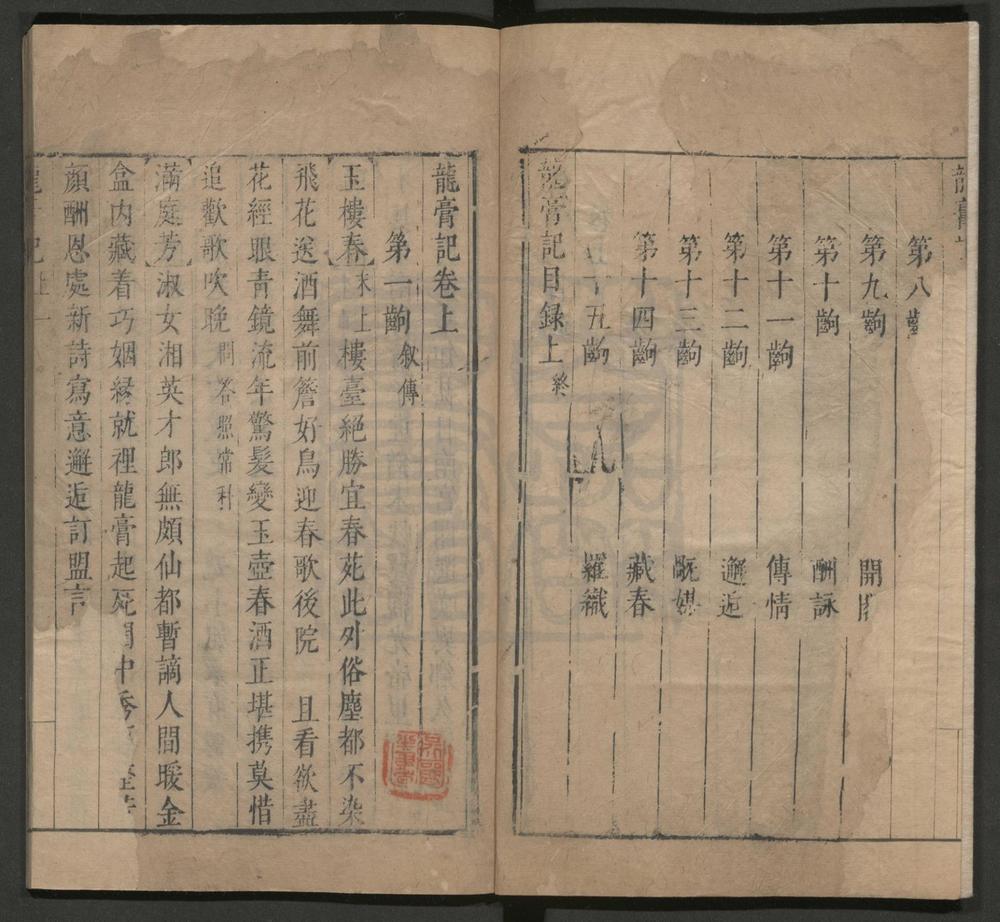 龍膏
第八齣
第九齣 開
第十齣 酬詠
第十一齣 傳情
第十二齣 邂逅
第十三齣 媒
第十四齣 藏春
十五齣 羅織
龍膏記目錄上終
龍膏記卷上
第一齣 敘傳
玉樓春末上樓臺絕勝宜春苑此外俗塵都不染
飛花送酒舞前簷好鳥迎春歌後院 且看欲盡
花經眼青鏡流年驚髮變玉壺春酒正堪携莫惜
追歡歌吹晚問答照常科
滿庭芳淑女湘英才郎無頗仙都暫謫人間暖金
盒內藏着巧姻緣就裡龍膏起死 中
顔酬恩處新詩寫意邂逅訂盟言
記 上 一